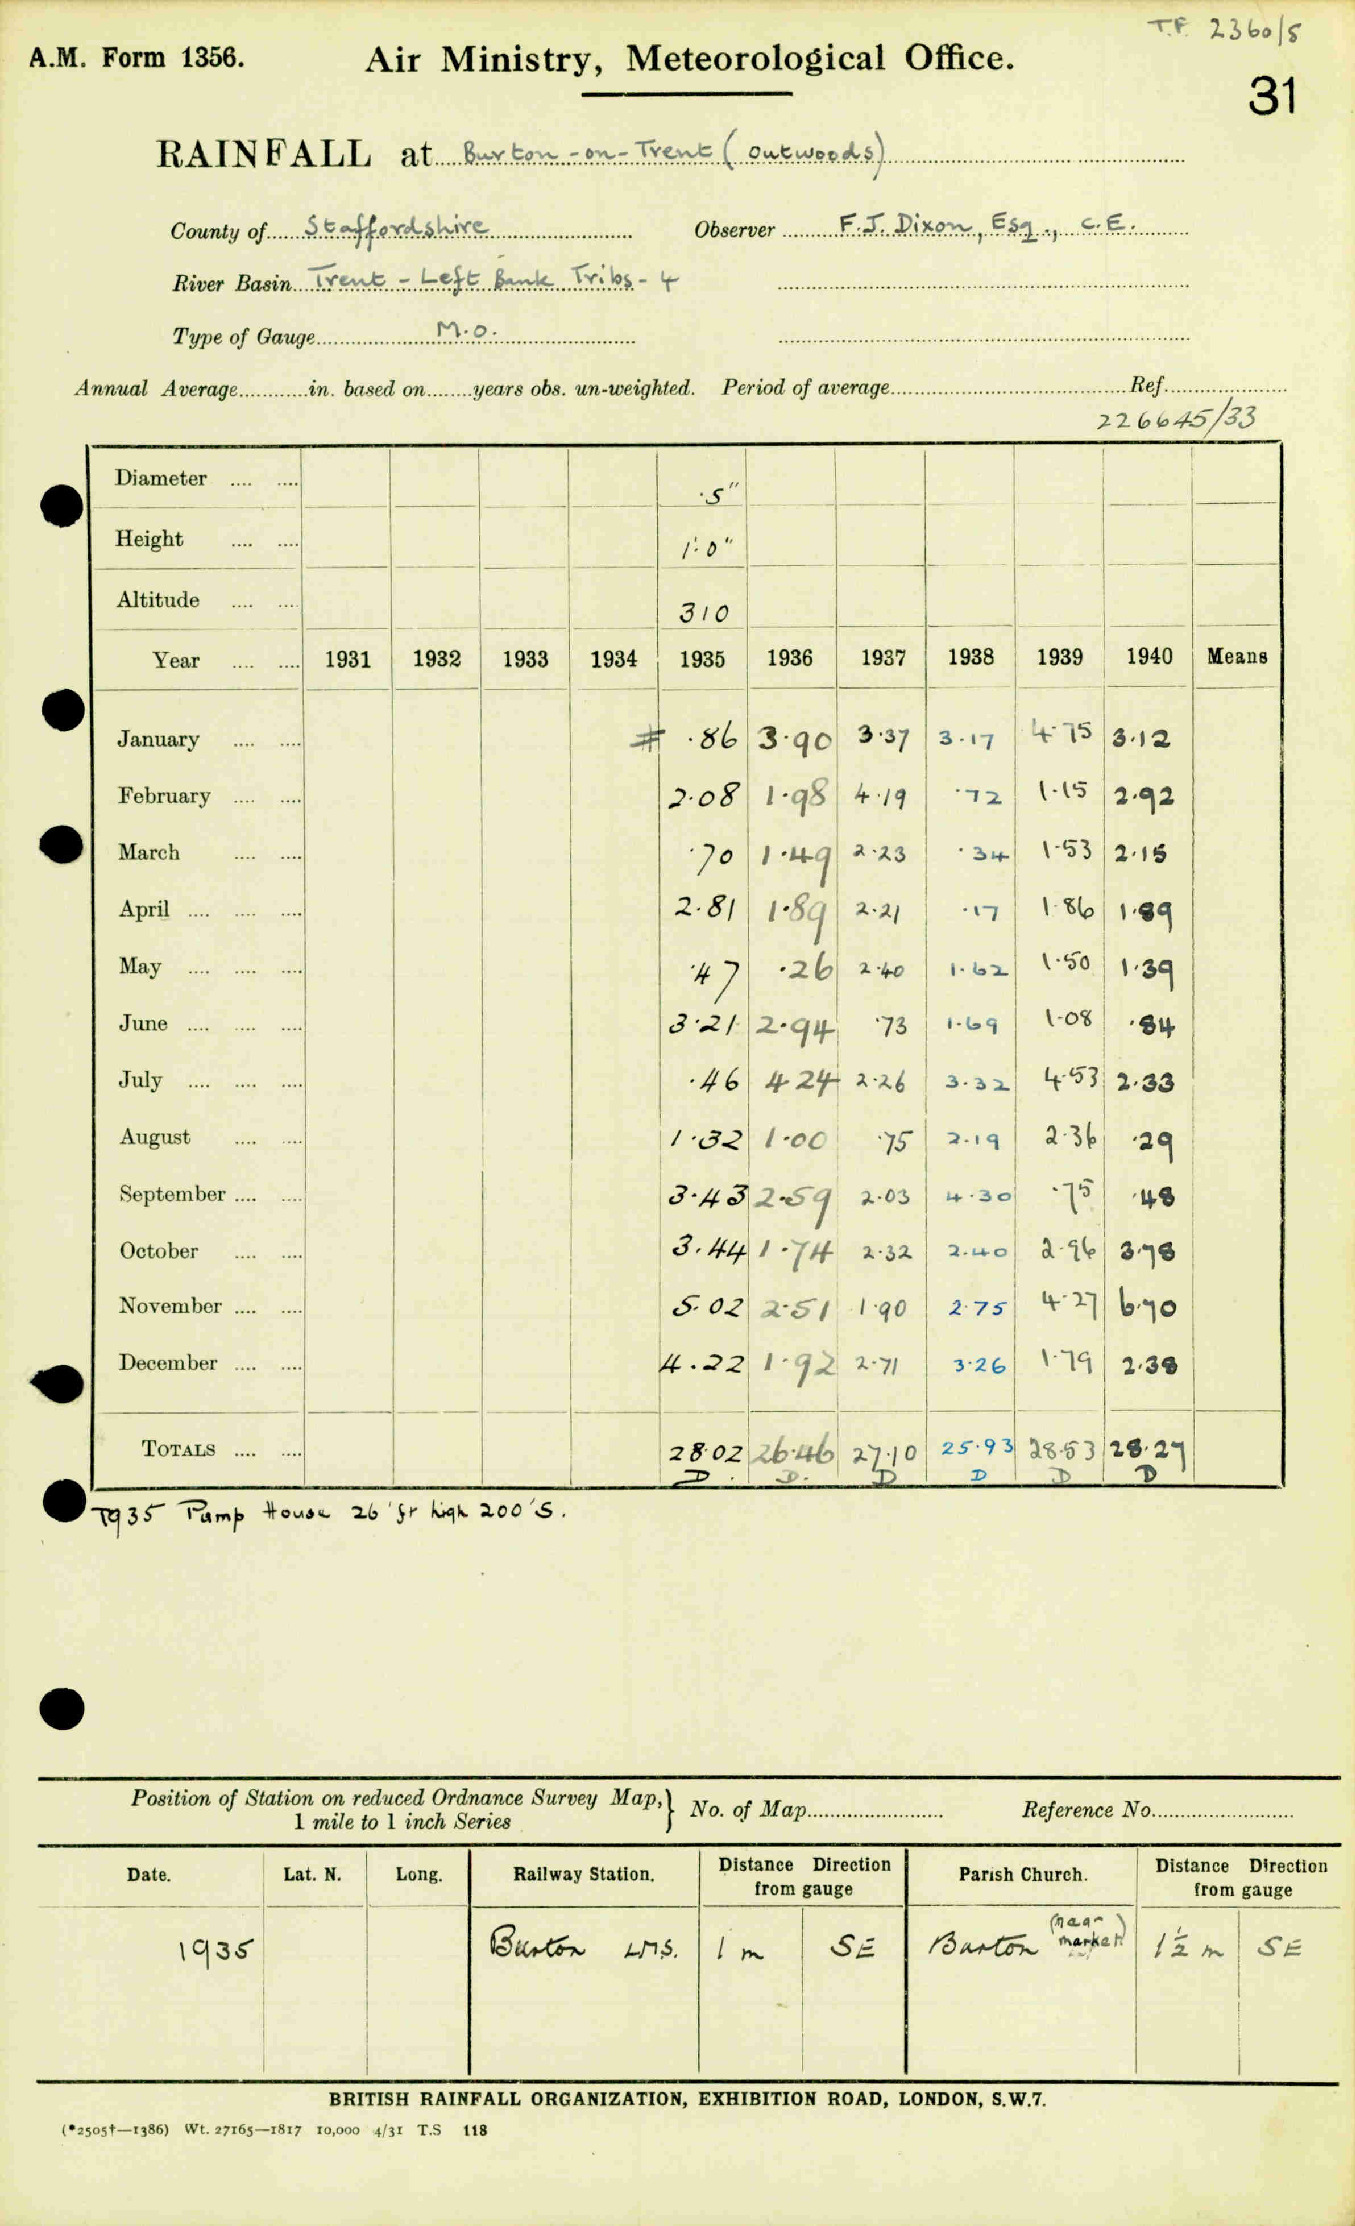 T.F. 2360/5
A.M. Form 1356. Air Ministry, Meteorological Office.
31
RAINFALL at Burton-on-Trent (Outwoods)
County of Staffordshire Observer F.J. Dixon, Esq., C.E.
River Basin Trent - Left Bank Tribs - 4
Type of Gauge M.O.
Annual Average in. based on years obs. un-weighted. Period of average Ref.
226645/33
Diameter 5"
Height 1'.0"
Altitude 310
Year 1931 1932 1933 1934 1935 1936 1937 1938 1939 1940 Means
January # .86 3.90 3.37 3.17 4.75 3.12
February 2.08 1.98 4.19 .72 1.15 2.92
March .70 1.49 2.23 .34 1.53 2.15
April 2.81 1.89 2.21 .17 1.86 1.89
May .47 .26 2.40 1.62 1.50 1.39
June 3.21 2.94 .73 1.69 1.08 .84
July .46 4.24 2.26 3.32 4.53 2.33
August 1.32 1.00 .75 2.19 2.36 .29
September 3.43 2.59 2.03 4.30 .75 .48
October 3.44 1.74 2.32 2.40 2.96 3.78
November 5.02 2.51 1.90 2.75 4.27 6.70
December 4.22 1.92 2.71 3.26 1.79 2.38
TOTALS 28.02 26.46 27.10 25.93 28.53 28.27
D D. D D D D
1935 Pump House 26 ft high 200'S.
Position of Station on reduced Ordnance Survey Map, } No. of Map Reference No.
1 mile to 1 inch Series
Date. Lat. N. Long. Railway Station. Distance Direction from gauge Parish Church. Distance Direction from gauge
1935 Burton LMS. 1 m SE Burton (near market) 1½ m SE
BRITISH RAINFALL ORGANIZATION, EXHIBITION ROAD, LONDON, S.W.7.
(*2505†—1386) Wt. 27165—1817 10,000 4/31 T.S 118